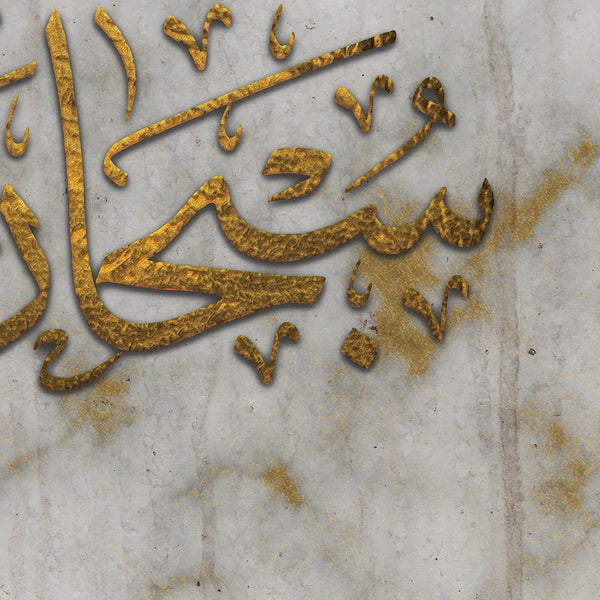 سُبْحَانَ